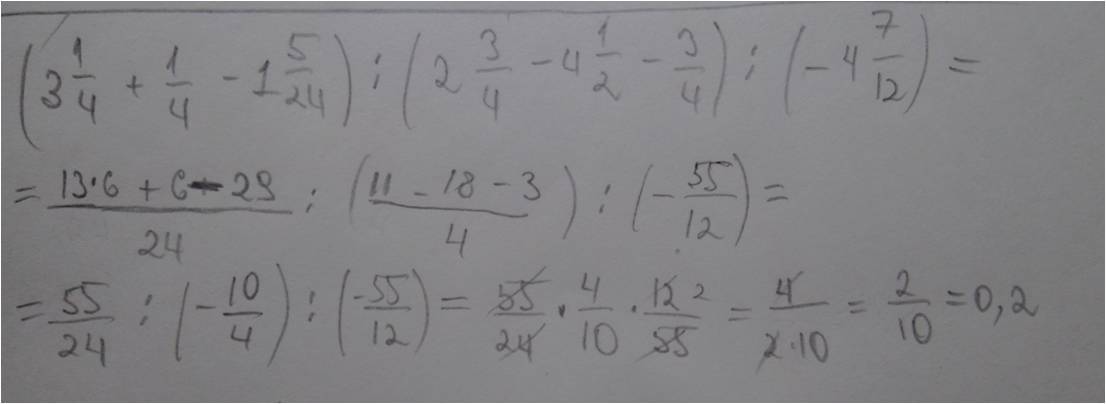 (3 1/4 + 1/4 - 1 5/24) : (2 3/4 - 4 1/2 - 3/4) : (-4 7/12) =
= (13·6 + 6 - 29)/24 : ((11 - 18 - 3)/4) : (-55/12) =
= 55/24 : (-10/4) : (-55/12) = 55/24 · 4/10 · 12 2/55 = 4/(2·10) = 2/10 = 0,2